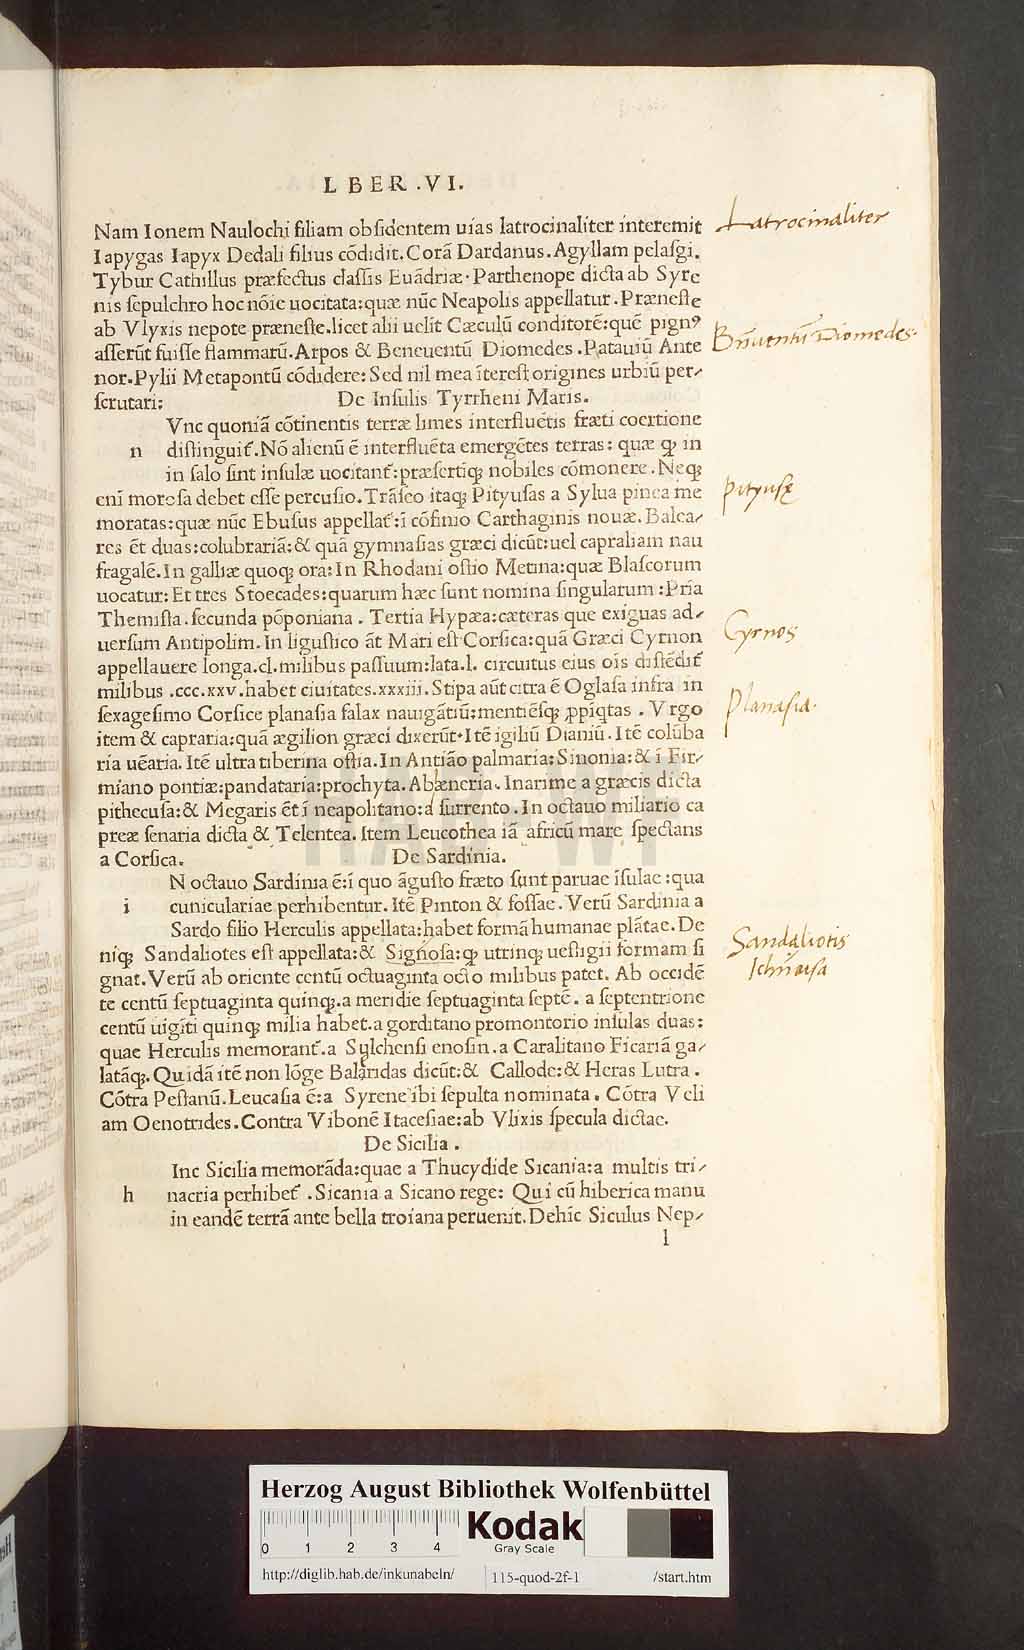 L BER .VI.
Nam Ionem Naulochi filiam obsidentem uias latrocinaliter interemit
Iapygas Iapyx Dedali filius cōdidit. Corā Dardanus. Agyllam pelasgi.
Tybur Cathillus præfectus classis Euādriæ. Parthenope dicta ab Syre
nis sepulchro hoc nōie uocitata: quæ nūc Neapolis appellatur. Præneste
ab Vlyxis nepote præneste. licet alii uelit Cæculū conditorē: quē pignꝰ
asserūt fuisse flammarū. Arpos & Beneuentū Diomedes. Patauiū Ante
nor. Pylii Metapontū cōdidere: Sed nil mea īterest origines urbiū per/
scrutari: De Insulis Tyrrheni Maris.
Vnc quoniā cōtinentis terræ limes interfluētis fræti coertione
n distinguit᷑. Nō alienū ē interfluēta emergētes terras: quæ ꝙ in
in salo sint insulæ uocitant᷑: præsertiꝙ nobiles cōmonere. Neqꝫ
eni morosa debet esse percusio. Trāseo itaqꝫ Pityusas a Sylua pinea me
moratas: quæ nūc Ebusus appellat᷑: ī cōfinio Carthaginis nouæ. Balea/
res ēt duas: colubrariā: & quā gymnasias græci dicūt: uel capraliam nau
fragalē. In galliæ quoqꝫ ora: In Rhodani ostio Metina: quæ Blascorum
uocatur: Et tres Stoecades: quarum hæc sunt nomina singularum: Pria
Themista. secunda pōponiana. Tertia Hypæa: cæteras que exiguas ad/
uersum Antipolim. In ligustico āt Mari est Corsica: quā Græci Cyrnon
appellauere longa. cl. milibus passuum: lata. l. circuitus eius oīs distēdit᷑
milibus .ccc.xxv. habet ciuitates. xxxiii. Stipa aūt citra ē Oglasa infra in
sexagesimo Corsice planasia falax nauigātiū: mentiēsqꝫ ꝓpīqtas. Vrgo
item & capraria: quā ægilion græci dixerūt. Itē igiliū Dianiū. Itē colūba
ria uēaria. Itē ultra tiberina ostia. In Antiāo palmaria: Sinonia: & ī Fir/
miano pontiæ: pandataria: prochyta. Abæneria. Inarime a græcis dicta
pithecusa: & Megaris ēt ī neapolitano: a surrento. In octauo miliario ca
preæ senaria dicta & Telentea. Item Leucothea iā africū mare spectans
a Corsica. De Sardinia.
N octauo Sardinia ē: ī quo āgusto fræto sunt paruae īsulae: qua
i cuniculariae perhibentur. Itē Pinton & fossae. Verū Sardinia a
Sardo filio Herculis appellata: habet formā humanae plātae. De
niqꝫ Sandaliotes est appellata: & Signosa: ꝙ utrinqꝫ uestigii formam si
gnat. Verū ab oriente centū octuaginta octo milibus patet. Ab occidē
te centū septuaginta quinqꝫ. a meridie septuaginta septē. a septentrione
centū uigīti quinqꝫ milia habet. a gorditano promontorio insulas duas:
quae Herculis memorant᷑. a Sylchensi enosin. a Caralitano Ficariā ga/
latāqꝫ. Quidā itē non lōge Balaridas dicūt: & Callode: & Heras Lutra.
Cōtra Pestanū. Leucasia ē: a Syrene ibi sepulta nominata. Cōtra Veli
am Oenotrides. Contra Vibonē Itacesiae: ab Vlixis specula dictae.
De Sicilia.
Inc Sicilia memorāda: quae a Thucydide Sicania: a multis tri/
h nacria perhibet᷑. Sicania a Sicano rege: Qui cū hiberica manu
in eandē terrā ante bella troiana peruenit. Dehīc Siculus Nep/
l
Latrocinaliter
Bn̄uentū Diomedes.
Pityusę
Cyrnos
Planasia.
Sandaliotis
Ichnusa
HAB WF
Herzog August Bibliothek Wolfenbüttel
0 1 2 3 4
Kodak
Gray Scale
http://diglib.hab.de/inkunabeln/ 115-quod-2f-1 /start.htm